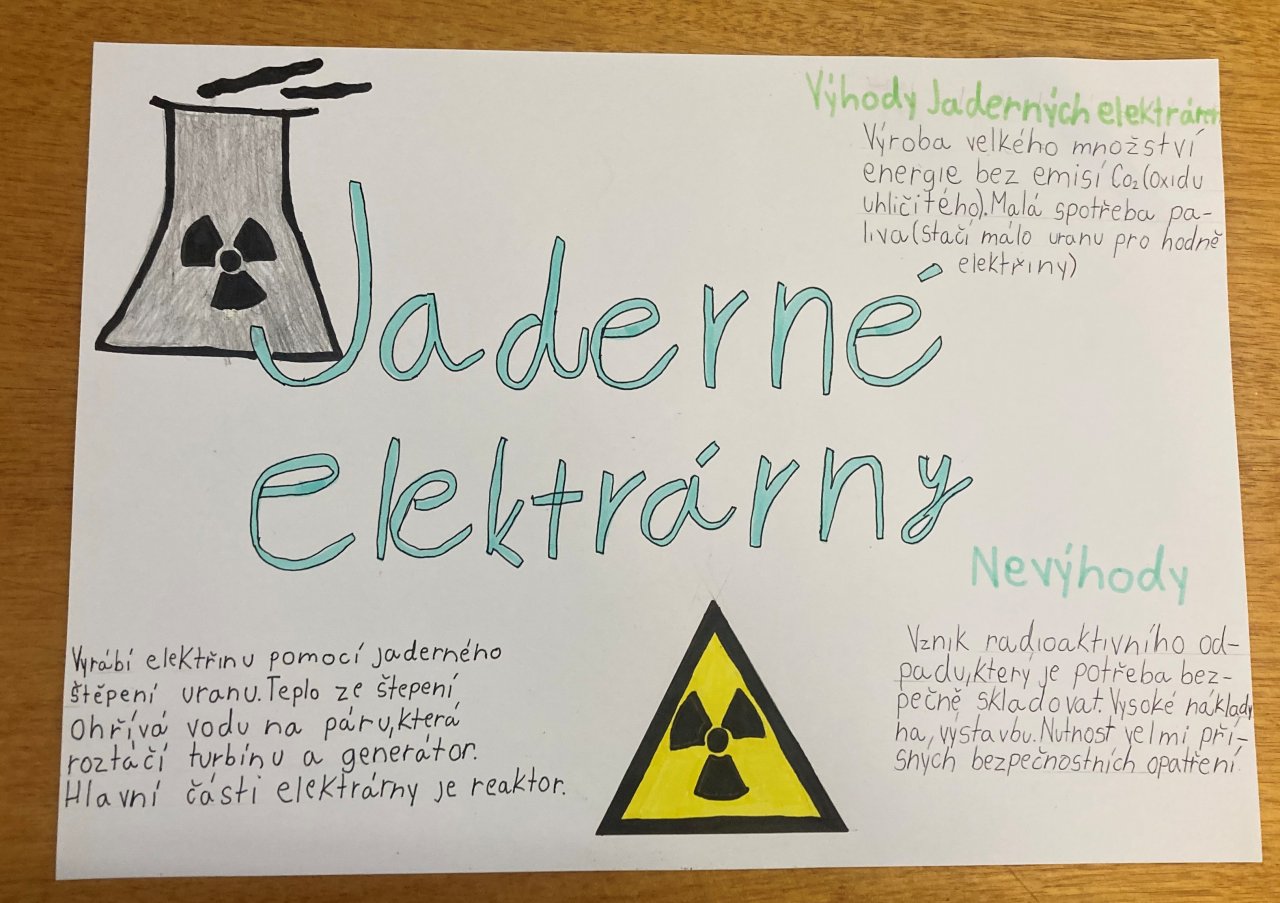 Jaderné
elektrárny
Výhody Jaderných elektráren
Výroba velkého množství
energie bez emisí Co₂(oxidu
uhličitého). Malá spotřeba pa-
liva(stačí málo uranu pro hodně
elektřiny)
Nevýhody
Vznik radioaktivního od-
padu, který je potřeba bez-
pečně skladovat. Vysoké náklady
na, výstavbu. Nutnost velmi pří-
sných bezpečnostních opatření.
Vyrábí elektřinu pomocí jaderného
štěpení uranu. Teplo ze štepení
ohřívá vodu na páru, která
roztáčí turbínu a generátor.
Hlavní části elektrárny je reaktor.